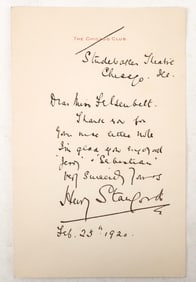 THE CHICAGO CLUB
Studebaker Theatre
Chicago. Ill.
Dear Miss Felsenbelt.
Thank you for
your nice letter note
I'm glad you enjoyed
"Sebastian"
Very Sincerely Yours
Henry Stanford
Feb. 25th 1920.